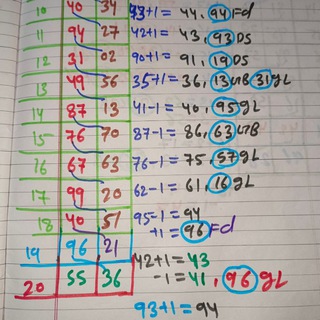 10 40 34 93+1= 44, 94 Fd
11 94 27 42+1= 43, 93 DS
12 31 02 90+1= 91, 19 DS
13 49 56 35+1= 36, 13 GB 31 gL
14 87 13 41-1= 40, 95 gL
15 76 70 87-1= 86, 63 GB
16 67 63 76-1= 75, 57 gL
17 99 20 62-1= 61, 16 gL
18 40 51 95-1= 94
+1= 96 Fd
19 96 21 42+1= 43
20 55 36 -1= 41, 96 gL
93+1= 94